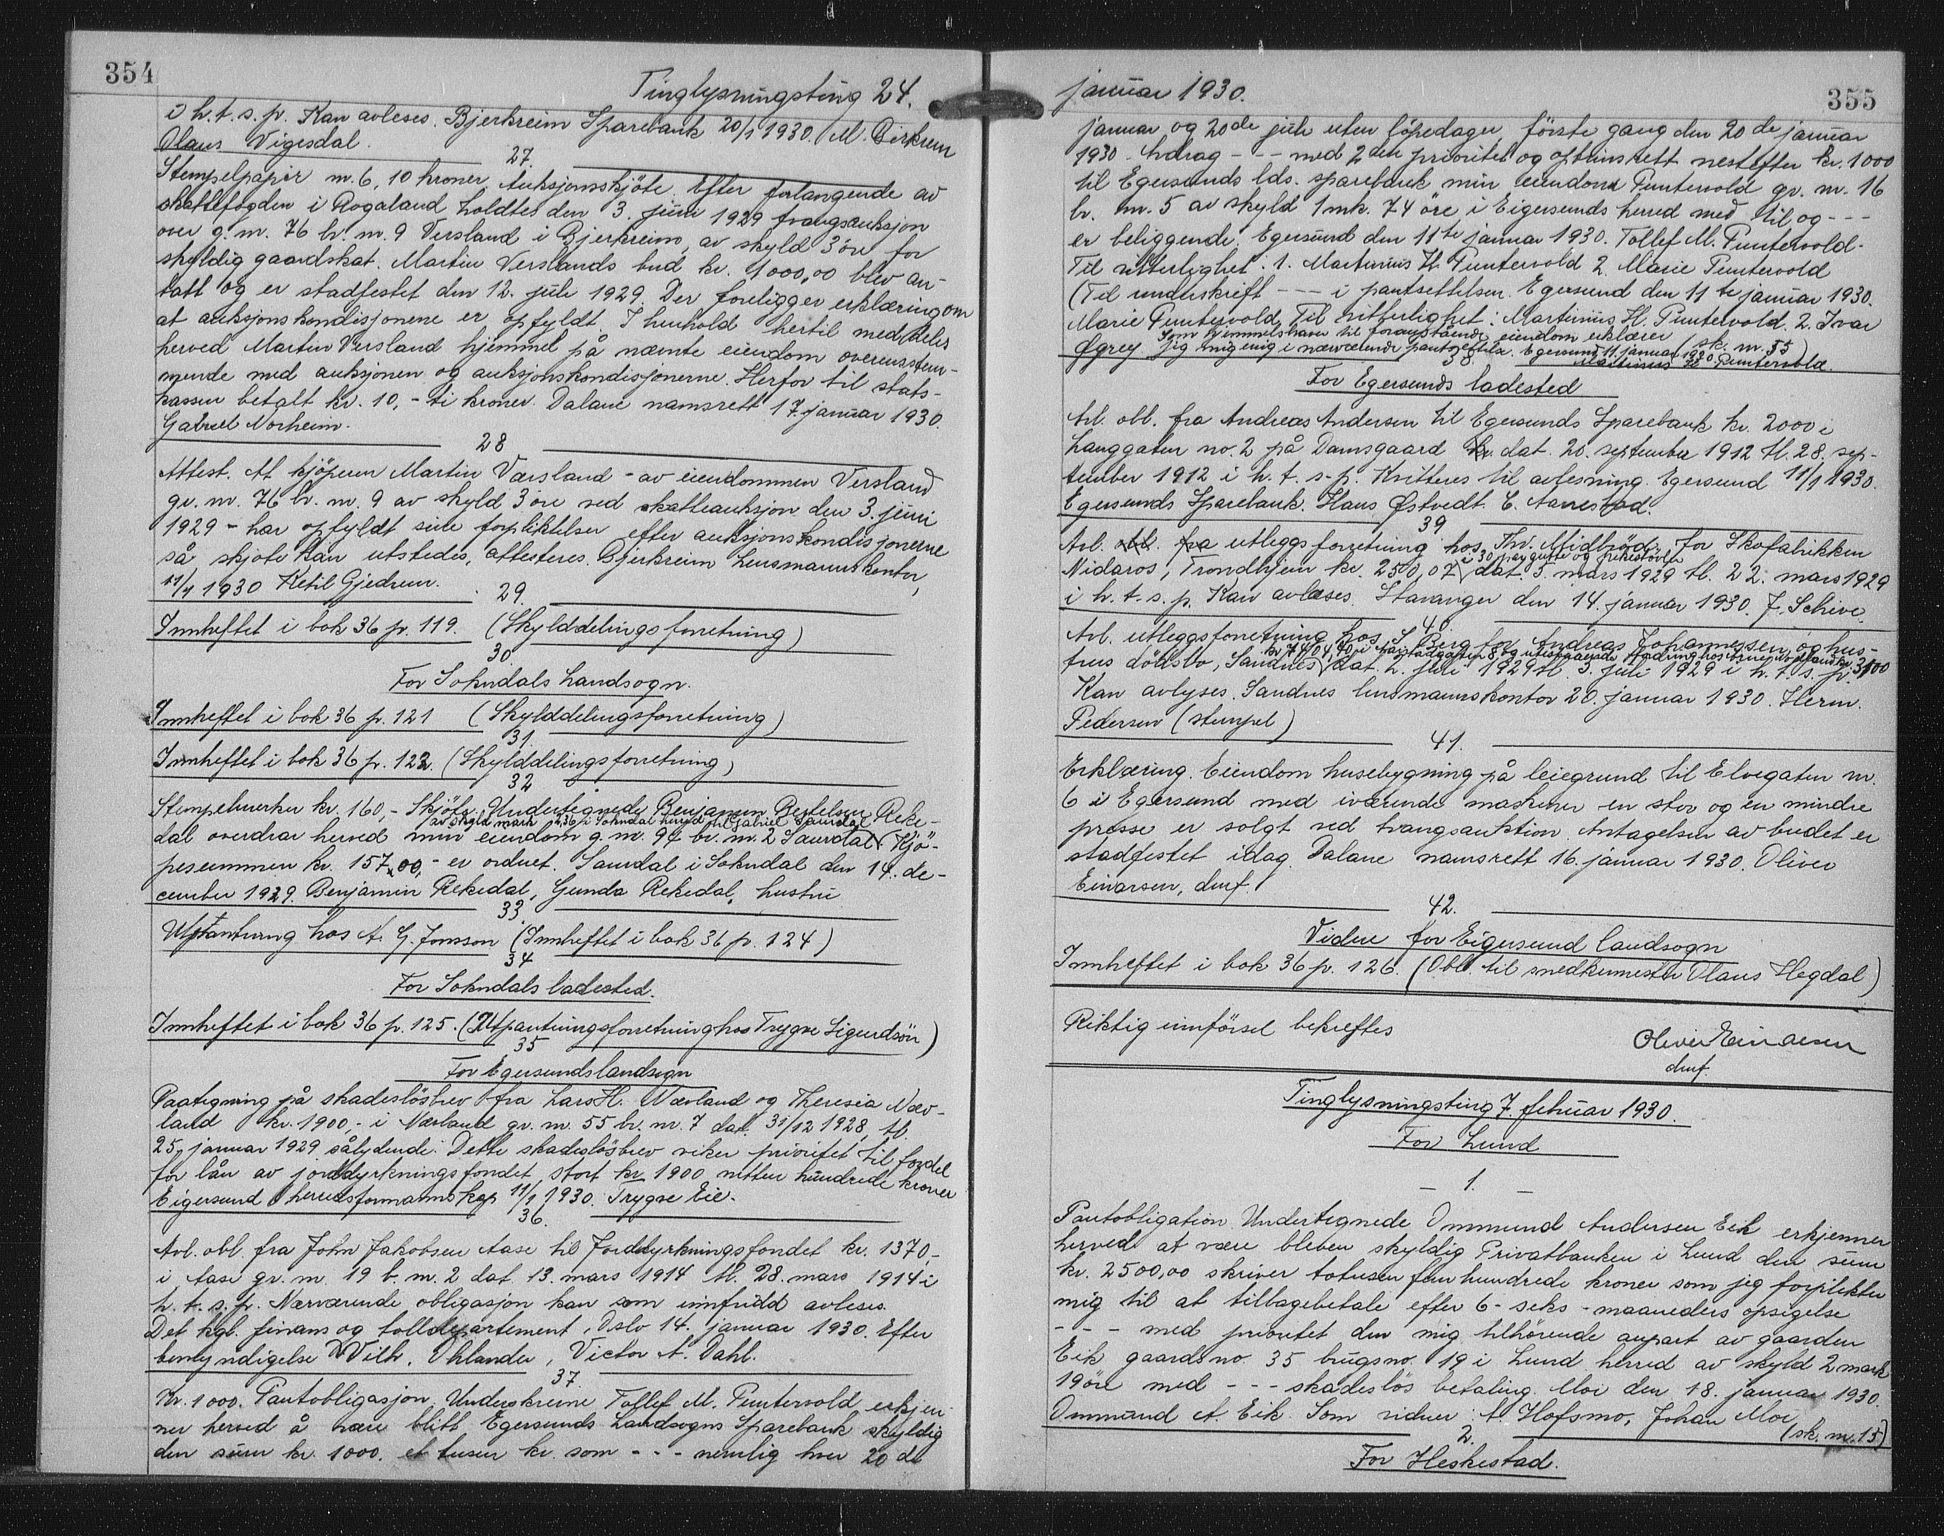 354
Tinglysningsting 24.
i h.t.s.p. Kan avleses. Bjerkreim Sparebank 20/1 1930. M. Birkrem
Olaus Vigesdal.
27.
Stempelpapir m. 6, 10 kroner Auksjonsskjöte. Efter forlangende av
skattefogden i Rogaland holdtes den 3. juni 1929 tvangsauksjon
over g.nr. 76 br.nr. 9 Versland i Bjerkreim, av skyld 3 öre for
skyldig gaardskat. Martin Verslands bud kr. 1000,00 blev an-
tatt og er stadfestet den 12. juli 1929. Der foreligger erklæring om
at auksjonskondisjonene er opfyldt. I henhold hertil meddeles
herved Martin Versland hjemmel på nævnte eiendom overensstem-
mende med auksjonen og auksjonskondisjonerne. Herfor til stats-
kassen betalt kr. 10,- ti kroner. Dalane namsrett 17. januar 1930.
Gabriel Norheim.
28
Attest. At kjöperen Martin Værsland - av eiendommen Versland
gr. nr. 76 br. nr. 9 av skyld 3 öre ved skatteauksjon den 3. juni
1929 - har opfyldt sine forpliktelser efter auksjonskondisjonerne
så skjöte kan utstedes, attesteres. Bjerkreim Lensmannskontor,
11/1 1930 Ketil Gjedrem.
29.
Innheftet i bok 36 p. 119. (Skylddelingsforretning)
30
For Sokndals landsogn.
Innheftet i bok 36 p. 121 (Skylddelingsforretning)
31
Innheftet i bok 36 p. 122. (Skylddelingsforretning)
32
Stempelmerker kr. 160,- Skjöte. Undertegnede Benjamin Bertelsen Reke-
av skyld mark 2,36 i Sokndal herred til Gabriel Saurdal
dal overdrar herved min eiendom g.nr. 94 br. nr. 2 Saurdal. Kjö-
pesummen kr. 157,00,- er ordnet. Saurdal i Sokndal den 14. de-
cember 1929. Benjamin Rekedal, Gunda Rekedal, hustru
33.
Utpantning hos A. G. Jonsson (Innheftet i bok 36 p. 124)
34
For Sokndals ladested.
Innheftet i bok 36 p. 125. (Utpantningsforretning hos Trygve Sigurdsön)
35
For Egersunds landsogn
Paategning på skadeslösbrev fra Lars H. Nævland og Theresia Næv-
land kr. 1900,- i Nævland gr. nr. 55 br. nr. 7 dat. 31/12 1928, tl.
25. januar 1929 sålydende: Dette skadeslösbrev viker prioritet til fordel
for lån av jorddyrkningsfondet stort kr 1900 nitten hundrede kroner
Eigersund herredsformannskap 11/1 1930. Trygve Eie.
36.
Avl. obl. fra John Jakobsen Aase til Jorddyrkningsfondet kr. 1370,-
i Aase gr. nr. 19 b. nr. 2 dat. 13. mars 1914 tl. 28. mars 1914 i
h. t. s. p. Nærværende obligasjon kan som innfridd avleses.
Det kgl. finans og tolldepartement, Oslo 14. januar 1930. Efter
bemyndigelse Wilh. Ohlander, Victor A. Dahl.
37
Kr. 1000. Pantobligasjon. Underskrevne Tollef M. Puntervold erkjen-
ner herved å være blitt Egersunds Landsogns Sparebank skyldig
den sum kr. 1000. et tusen kr. som - - - nemlig hver 20 de
januar 1930.
355
januar og 20de juli uten löpedager, förste gang den 20 de januar
1930. Avdrag - - - med 2 den prioritet og optrinsrett nestefter kr. 1000
til Egersunds lds. sparebank min eiendom Puntervold gr. nr. 16
br. nr. 5 av skyld 1 mk. 74 öre i Eigersunds herred med til og - - -
er beliggende. Egersund den 11te januar 1930. Tollef M. Puntervold.
Til vitterlighet: 1. Martinius H. Puntervold 2. Marie Puntervold
(Til underskrift - - - i pantsettelsen. Egersund den 11te januar 1930.
Marie Puntervold. Til vitterlighet: Martinius H. Puntervold. 2. Ivar
Som hjemmelshaver til foranstående eiendom erklærer
Øgrey jeg mig enig i nærværende pantsettelse. Egersund 11. januar 1930 (sk. nr. 55)
Martinius H. Puntervold.
38
For Egersunds ladested
Avl. obl. fra Andreas Andersen til Egersunds Sparebank kr. 2000 i
Langgaten no. 2 på Damsgaard dat. 20. september 1912 tl. 28. sep-
tember 1912 i h. t. s. p. Kvitteres til avlesning. Egersund 11/1 1930.
Egersunds Sparebank. Hans Østvedt. E. Aarrestad.
39
Avl. obl. fra utleggsforretning hos Thv. Midbröd for Skofabrikken
Nidaros, Trondhjem kr. 250,07 dat. 5. mars 1929 tl. 22. mars 1929
i h. t. s. p. Kan avleses. Stavanger den 14. januar 1930. J. Schive.
40.
Avl. utleggsforretning hos S. Berg for Andreas Johannessen og hus-
trus dödsbo, Sandnes dat. 2. juli 1929 tl. 3. juli 1929 i h. t. s. p. 3100
Kan avlyses. Sandnes lensmannskontor 20. januar 1930. Herm.
Pedersen (stempel)
41.
Erklæring. Eiendom husebygning på leiegrund til Elvegaten nr.
6 i Egersund med iværende maskiner en stor og en mindre
presse er solgt ved tvangsauktion. Antagelsen av budet er
stadfestet idag. Dalane namsrett 16. januar 1930. Oliver
Einarsen, dmf.
42.
Videre for Eigersund landsogn
Innheftet i bok 36 p. 126. (Obl. til snedkermester Olaus Hegdal)
Riktig innförsel bekreftes
Oliver Einarsen
dmf.
Tinglysningsting 7. februar 1930.
For Lund
- 1. -
Pantobligation. Undertegnede Ommund Andersen Eik erkjenner
herved at være bleven skyldig Privatbanken i Lund den sum
kr. 2500,00 skriver totusen fem hundrede kroner som jeg forplikter
mig til at tilbagebetale efter 6 - seks - maaneders opsigelse
- - - med prioritet den mig tilhörende anpart av gaarden
Eik gaardsno. 35 brugsno. 19 i Lund herred av skyld 2 mark
19 öre med - - - skadeslös betaling. Moi den 18. januar 1930.
Ommund A. Eik Som vidner: A. Hofsmo, Johan Moi
(sk. nr. 15)
2.
For Heskestad.